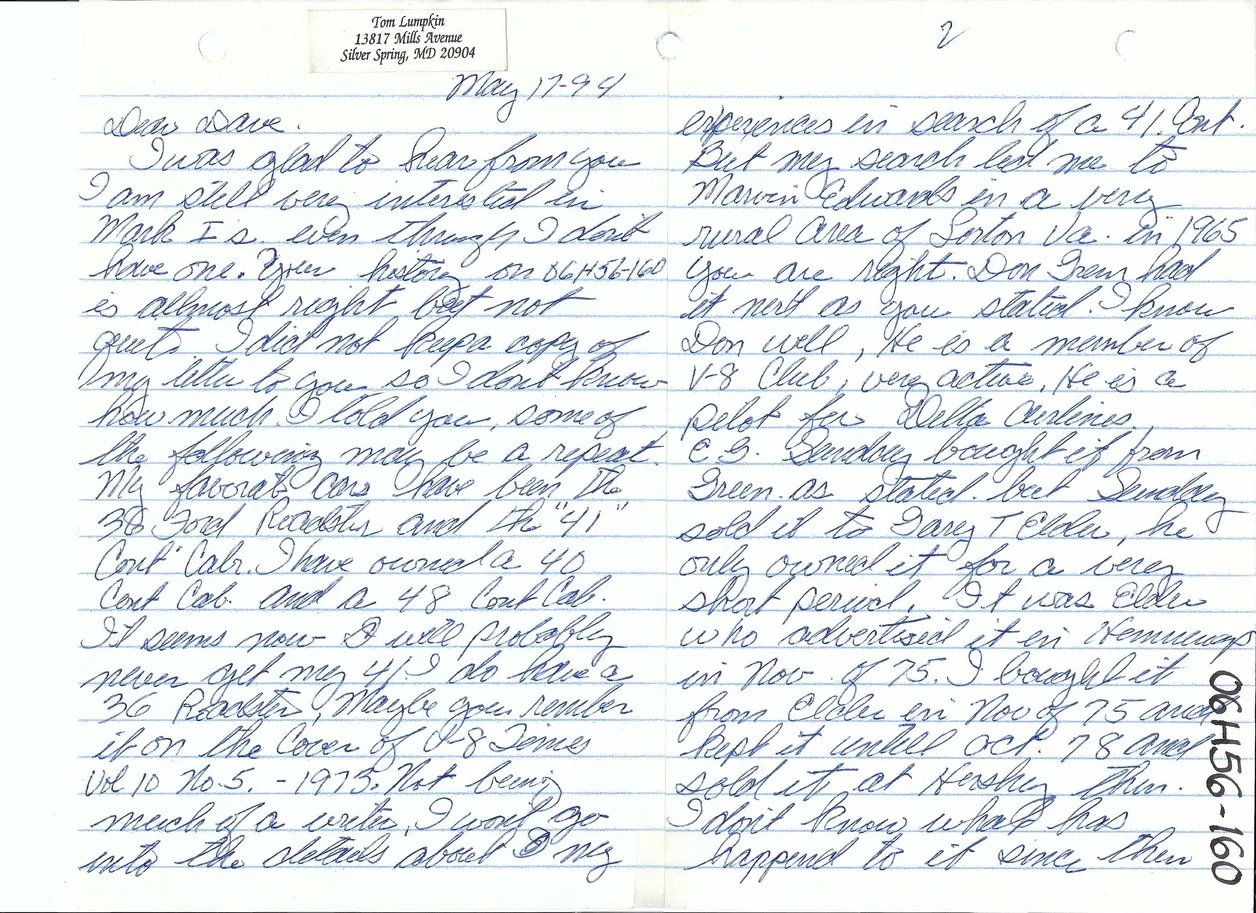 Tom Lumpkin
13817 Mills Avenue
Silver Spring, MD 20904
May 17-94
Dear Dave.
I was glad to hear from you
I am still very interested in
Mark I s. even though I don't
have one. Your history on 06H56-160
is allmost right but not
quit. I did not keep a copy of
my letter to you so I dont know
how much I told you, some of
the following may be a repeat.
My favorat cars have been the
36 Ford Roadster and the "41"
Cont' Cabr. I have owned a 40
Cont Cab. and a 48 Cont Cab.
It seems now I will probably
never get my 41. I do have a
36 Roadster, Maybe you rember
it on the Cover of V-8 Times
Vol 10 No. 5. - 1973. Not being
much of a writer, I wont go
into the details about my
2
experiences in search of a 41. Cont.
But my search led me to
Marvin Edwards in a very
rural area of Lorton Va. in 1965
You are right. Don Green had
it next as you stated. I know
Don well, He is a member of
V-8 Club, very active, He is a
pilot for Delta Airlines.
E.G. bought it from
Green as stated. but
sold it to Gary T Elder, he
only owned it for a very
short period. It was Elder
who advertised it in Hemmings
in Nov. of 75. I bought it
from Elder in Nov of 75 and
kept it untill Oct. 78 and
sold it at Hershey then.
I don't know what has
happend to it since then
06H56-160